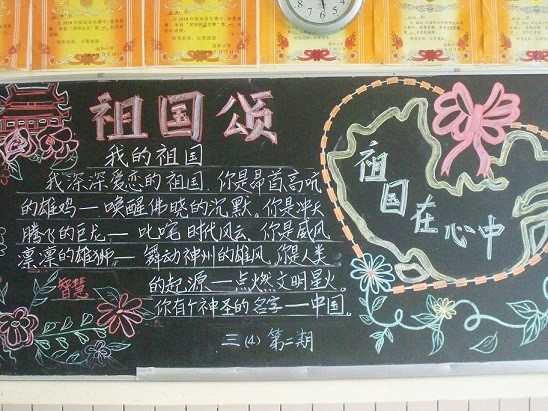 祖国颂
我的祖国
我深深爱恋的祖国.你是昂首高吭
的雄鸡——唤醒佛晓的沉默。你是冲天
腾飞的巨龙——叱咤时代风云,你是威风
凛凛的雄狮。——舞动神州的雄风,你是人类
的起源——点燃文明星火。
你有个神圣的名字——中国。
智慧
三(4)第二期
祖国在心中